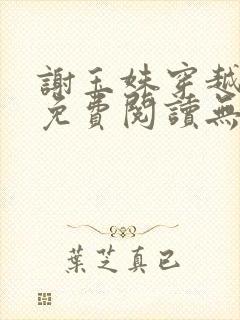 謝玉妹穿越
免費閱讀無
葉芝真已